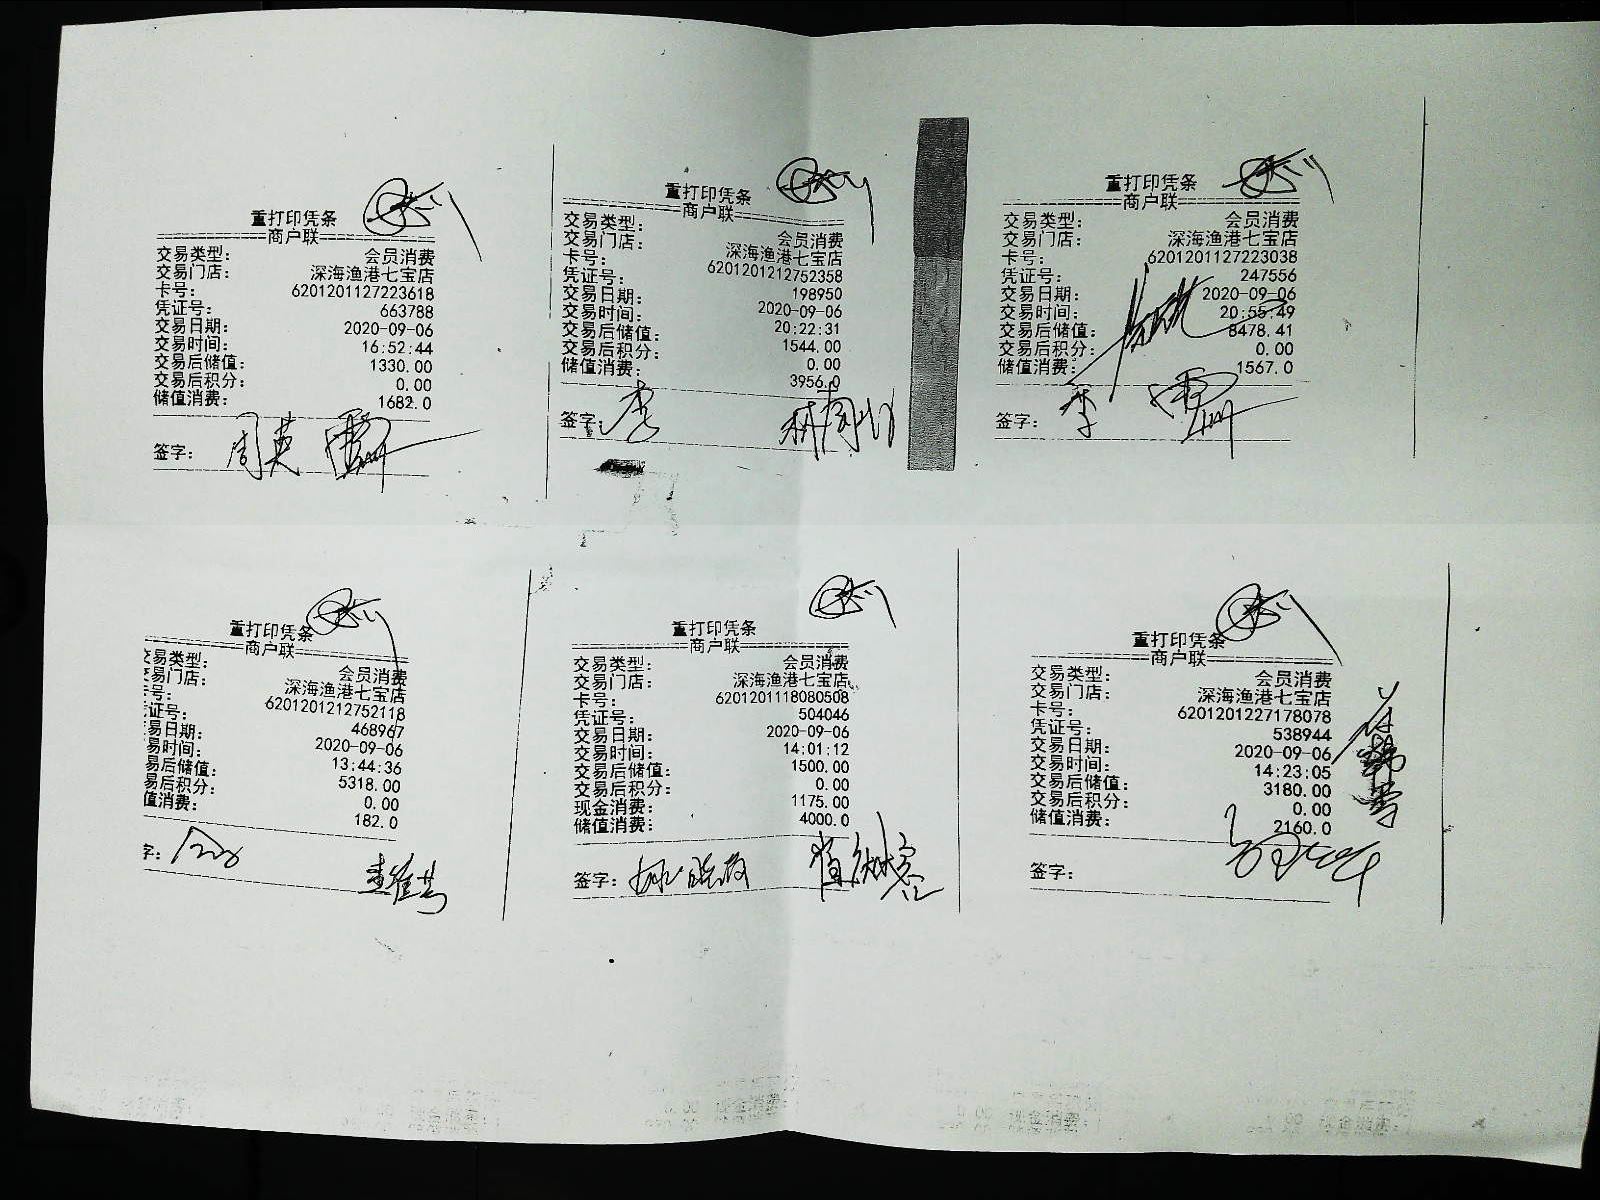 重打印凭条
商户联
交易类型: 会员消费
交易门店: 深海渔港七宝店
卡号: 6201201127223618
凭证号: 663788
交易日期: 2020-09-06
交易时间: 16:52:44
交易后储值: 1330.00
交易后积分: 0.00
储值消费: 1682.0
签字: 周英
重打印凭条
商户联
交易类型: 会员消费
交易门店: 深海渔港七宝店
卡号: 6201201212752358
凭证号: 198950
交易日期: 2020-09-06
交易时间: 20:22:31
交易后储值: 1544.00
交易后积分: 0.00
储值消费: 3956.0
签字: 李
重打印凭条
商户联
交易类型: 会员消费
交易门店: 深海渔港七宝店
卡号: 6201201127223038
凭证号: 247556
交易日期: 2020-09-06
交易时间: 20:55:49
交易后储值: 8478.41
交易后积分: 0.00
储值消费: 1567.0
签字: 李
重打印凭条
商户联
交易类型: 会员消费
交易门店: 深海渔港七宝店
卡号: 6201201212752118
凭证号: 468967
易日期: 2020-09-06
易时间: 13:44:36
易后储值: 5318.00
易后积分: 0.00
值消费: 182.0
字:
重打印凭条
商户联
交易类型: 会员消费
交易门店: 深海渔港七宝店
卡号: 6201201118080508
凭证号: 504046
交易日期: 2020-09-06
交易时间: 14:01:12
交易后储值: 1500.00
交易后积分: 0.00
现金消费: 1175.00
储值消费: 4000.0
签字:
重打印凭条
商户联
交易类型: 会员消费
交易门店: 深海渔港七宝店
卡号: 6201201227178078
凭证号: 538944
交易日期: 2020-09-06
交易时间: 14:23:05
交易后储值: 3180.00
交易后积分: 0.00
储值消费: 2160.0
签字: